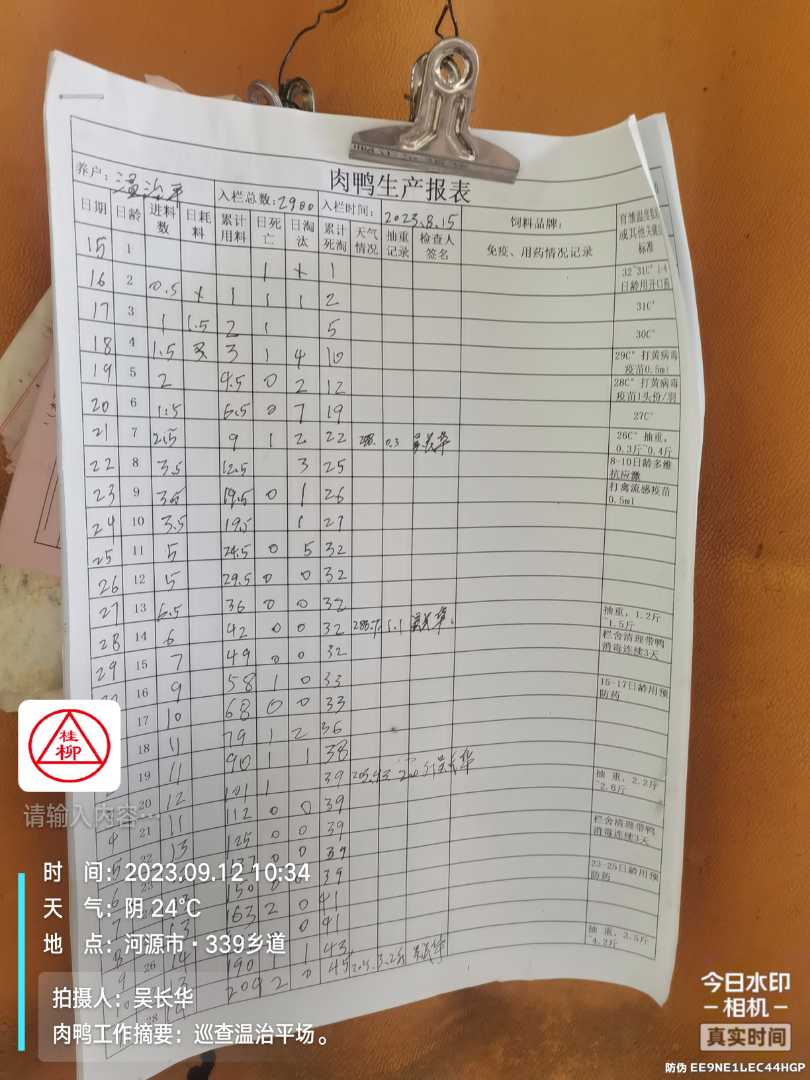 肉鸭生产报表
养户: 温治平 入栏总数: 2900 入栏时间: 2023.8.15 饲料品牌:
日期 日龄 进料数 日耗料 累计用料 日死亡 日淘汰 累计死淘 天气情况 抽重记录 检查人签名 免疫、用药情况记录
15 1 1 1 32~31C° 1-4日龄用开口药
16 2 0.5 1 1 1 2 31C°
17 3 1 1.5 2 1 5 30C°
18 4 1.5 3 1 4 10 29C° 打黄病毒疫苗0.5ml
19 5 2 4.5 0 2 12 28C° 打黄病毒疫苗1头份/羽
20 6 1.5 6.5 0 7 19 27C°
21 7 2.5 9 1 2 22 0.3 吴长华 26C° 抽重，0.3斤~0.4斤
22 8 3.5 12.5 3 25 8-10日龄多维抗应激
23 9 3.5 0 1 26 打禽流感疫苗0.5ml
24 10 3.5 19.5 1 27
25 11 5 24.5 0 5 32
26 12 5 29.5 0 0 32
27 13 6.5 36 0 0 32 抽重，1.2斤~1.5斤
28 14 6 42 0 0 32 1.1 吴长华 栏舍清理带鸭消毒连续3天
29 15 7 49 0 0 32
16 9 58 1 0 33 15-17日龄用预防药
17 10 68 0 0 33
18 11 79 1 2 36
19 11 90 1 1 38
20 12 101 1 39 吴长华 抽重，2.2斤~2.6斤
4 21 11 112 0 0 39 栏舍清理带鸭消毒连续3天
5 22 13 125 0 0 39
6 23 137 0 0 39 23-25日龄用预防药
7 150 0 39
163 2 0 41
8 26 14 0 41 抽重，3.5斤~4.2斤
9 190 1 1 43
10 28 209 2 0 45 吴长华
桂柳
请输入内容…
时 间: 2023.09.12 10:34
天 气: 阴 24℃
地 点: 河源市·339乡道
拍摄人: 吴长华
肉鸭工作摘要: 巡查温治平场。
今日水印
相机
真实时间
防伪 EE9NE1LEC44HGP